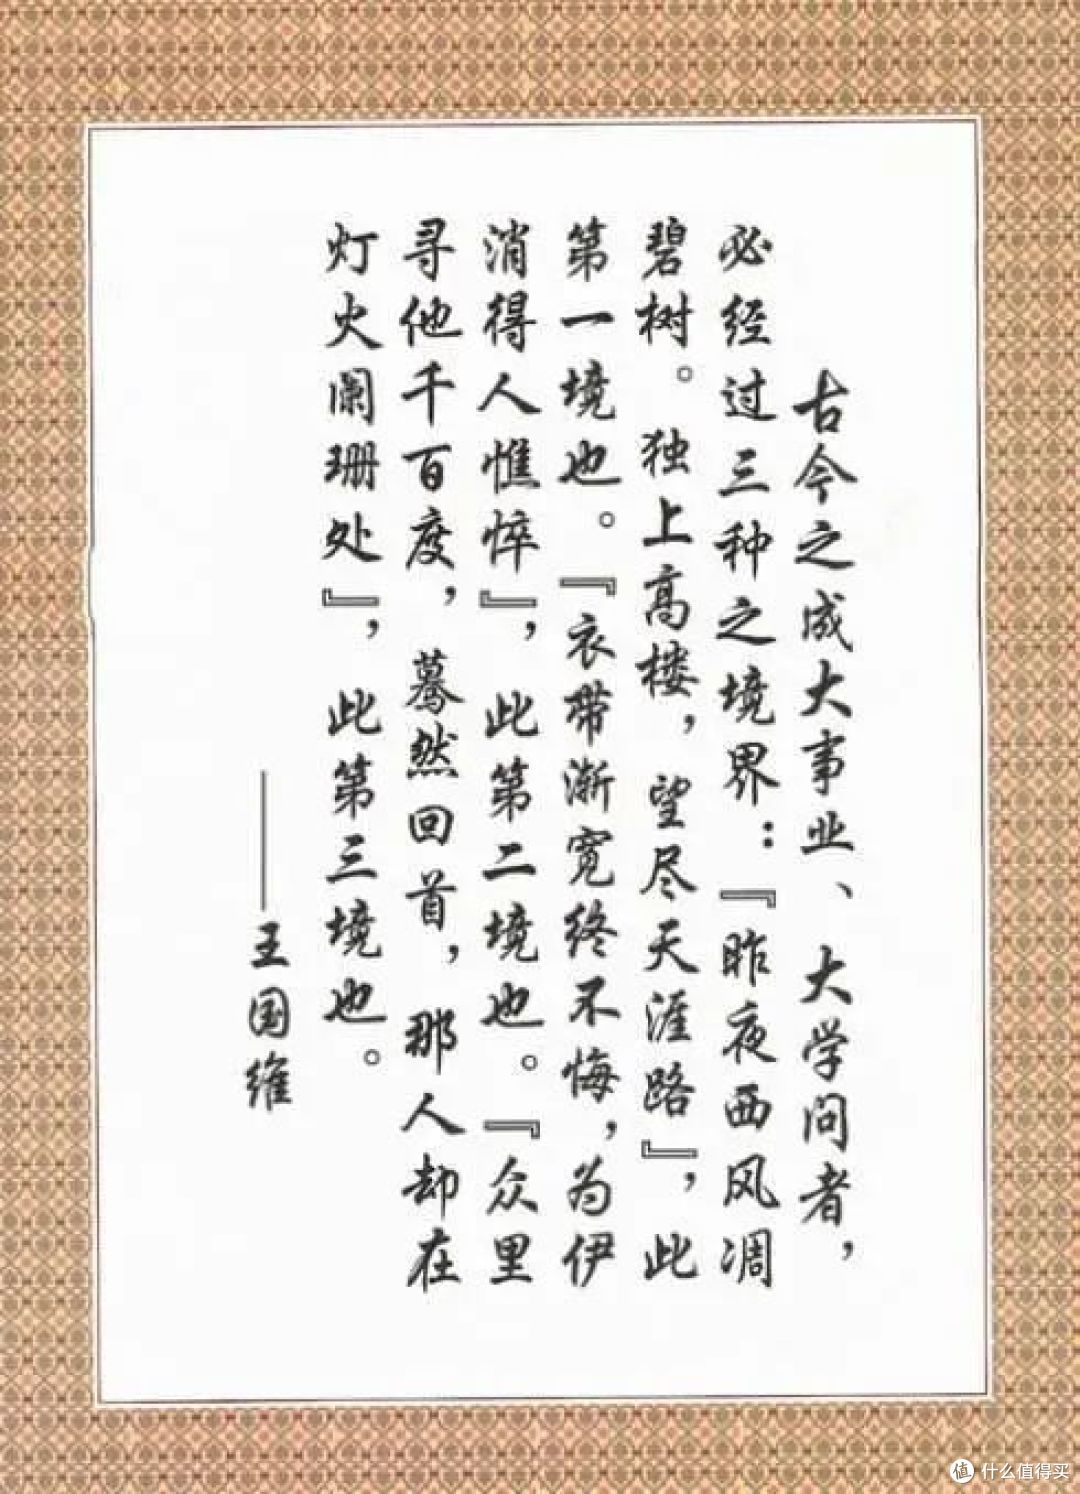 古今之成大事业、大学问者，
必经过三种之境界：『昨夜西风凋
碧树。独上高楼，望尽天涯路』，此
第一境也。『衣带渐宽终不悔，为伊
消得人憔悴』，此第二境也。『众里
寻他千百度，蓦然回首，那人却在
灯火阑珊处』，此第三境也。
——王国维
值 什么值得买